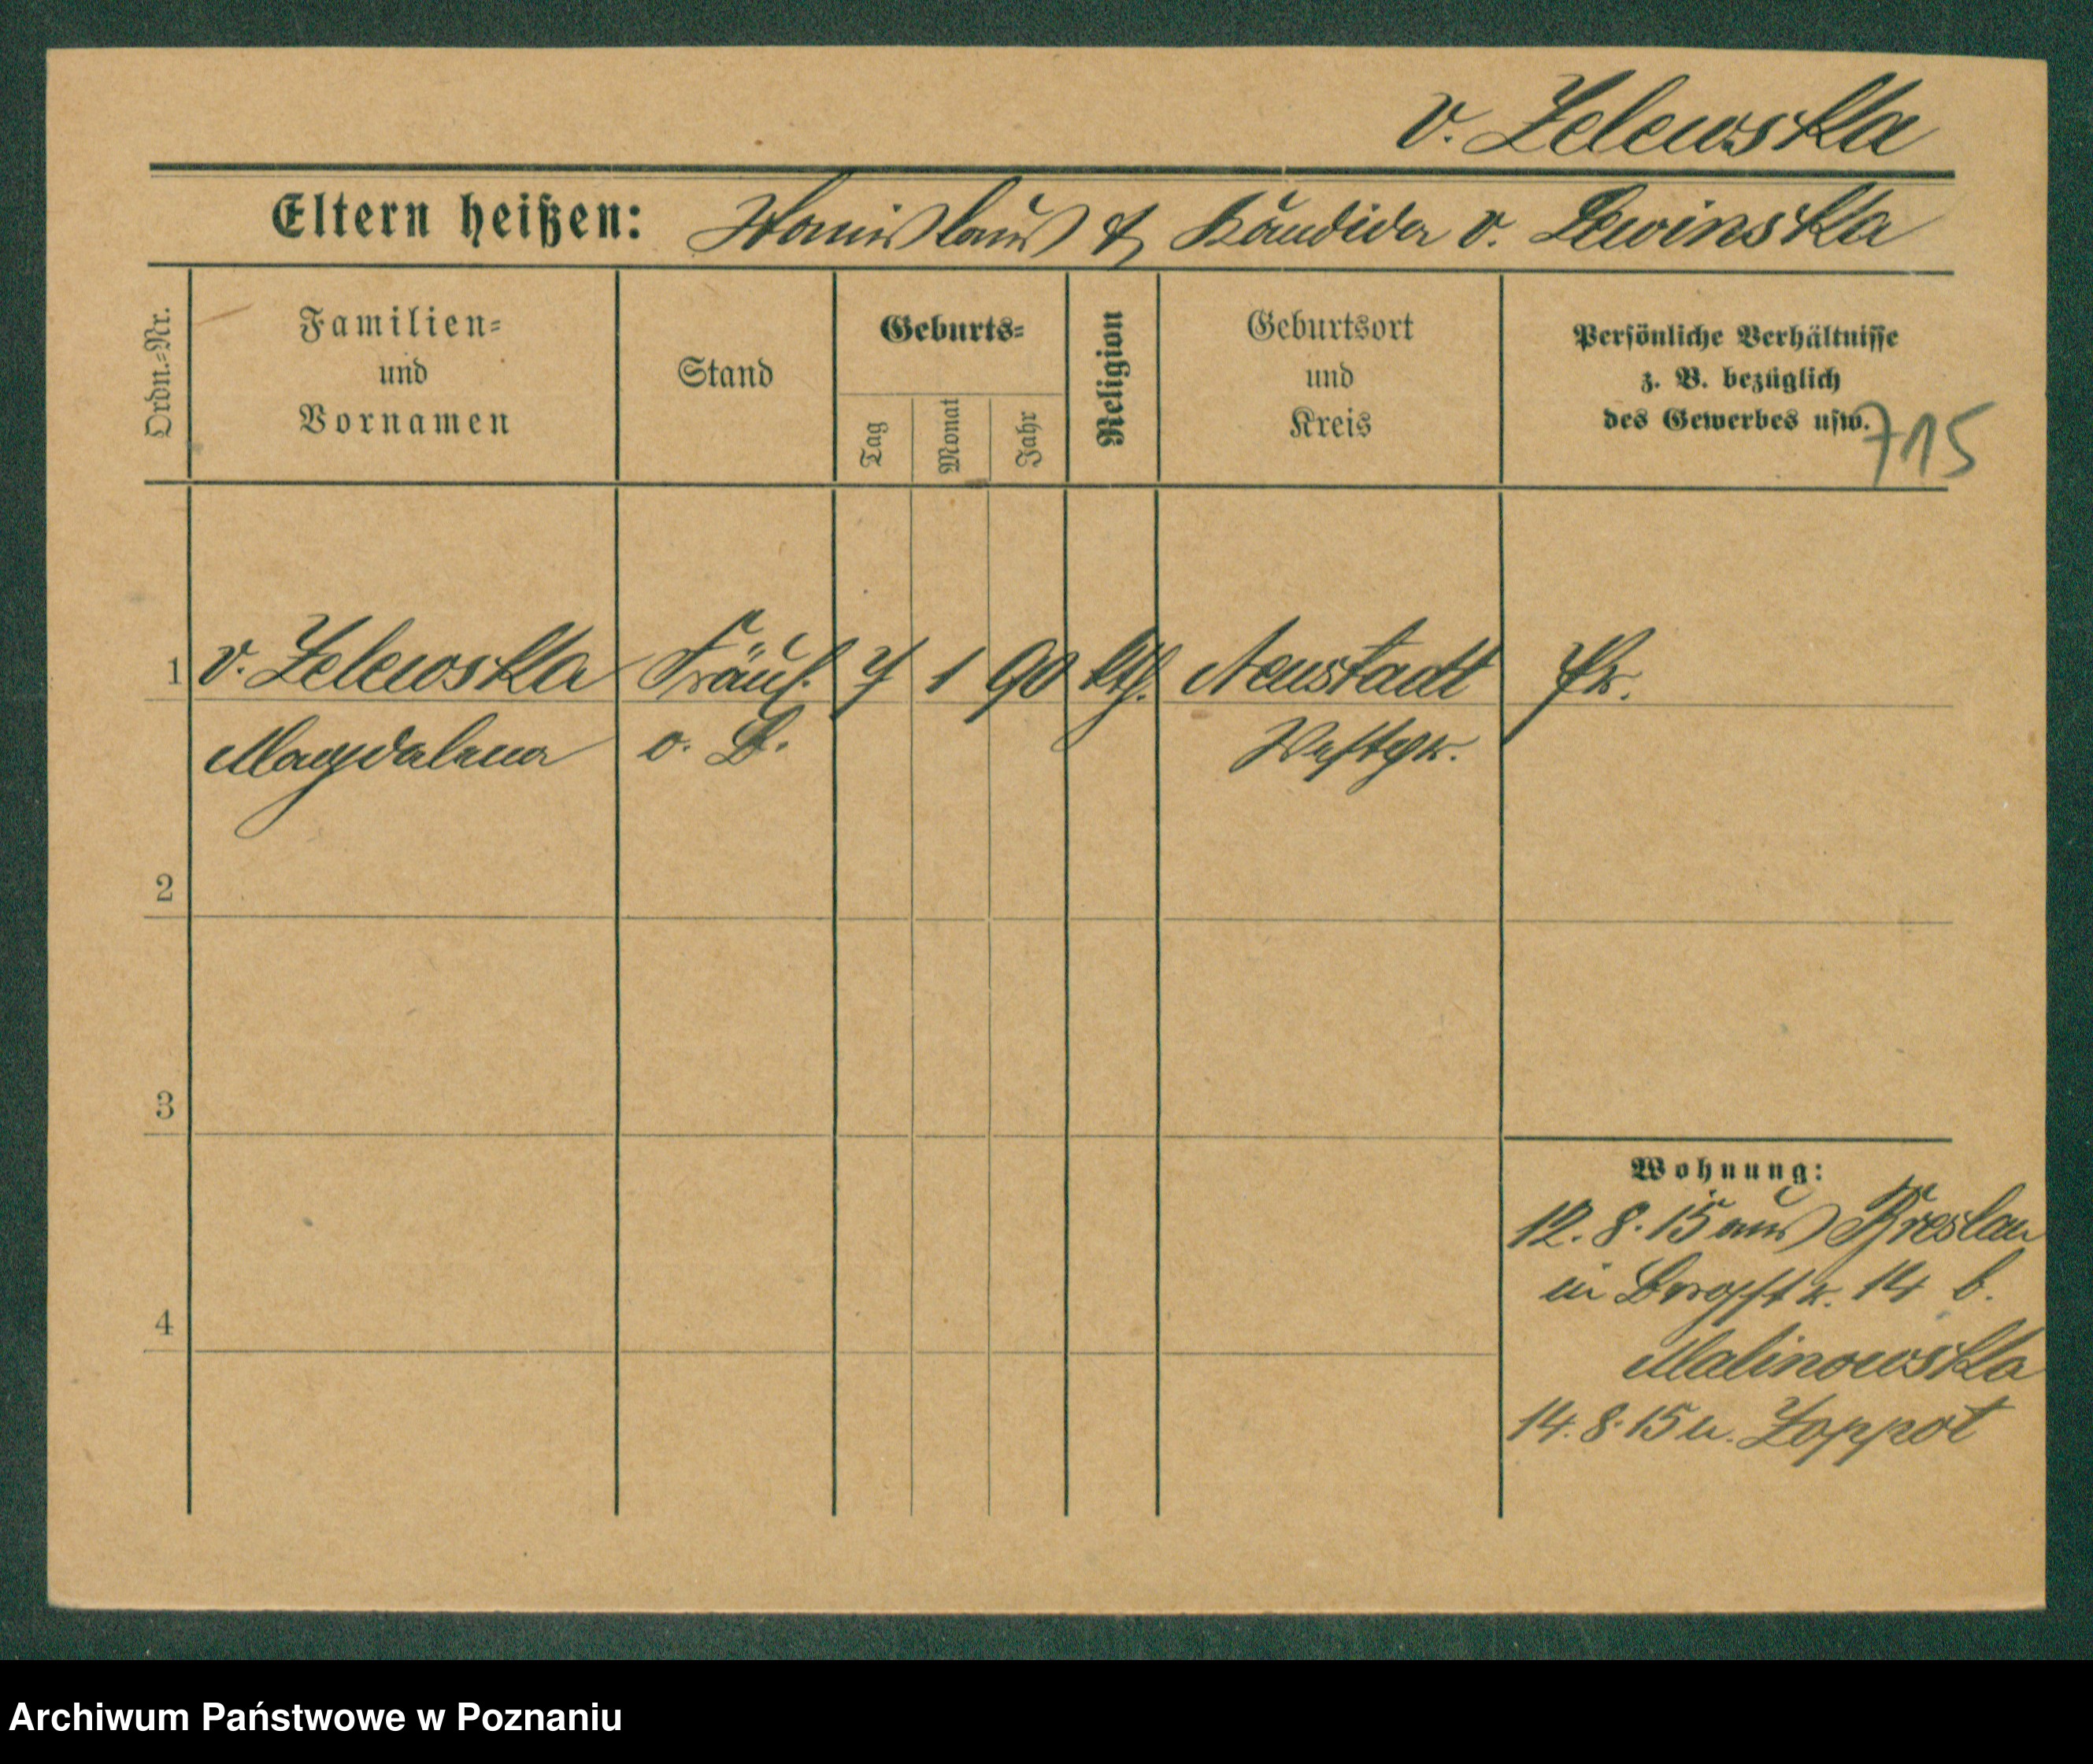 v. Zelewska
Eltern heißen: Stanislaus & Kandida v. Lewinska
Ordn.=Nr.
Familien=
und
Vornamen
Stand
Geburts=
Tag
Monat
Jahr
Religion
Geburtsort
und
Kreis
Persönliche Verhältnisse
z. B. bezüglich
des Gewerbes usw.
715
1 v. Zelewska Fräul. 7 1 90 kth. Neustadt Pr.
Magdalena o. B. Westpr.
2
3
4
Wohnung:
12. 8. 15 aus Breslau
in Bergstr. 14 b.
Malinowska
14. 8. 15 n. Zoppot
Archiwum Państwowe w Poznaniu